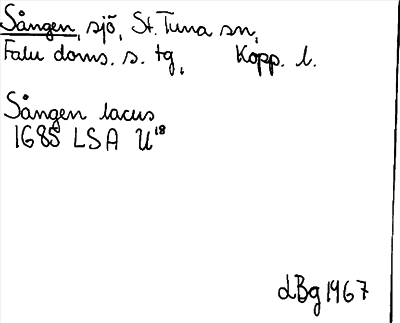 Sången, sjö, St. Tuna sn,
Falu doms. s. tg, Kopp. l.
Sången lacus
1685 LSA U¹⁸
LBg 1967